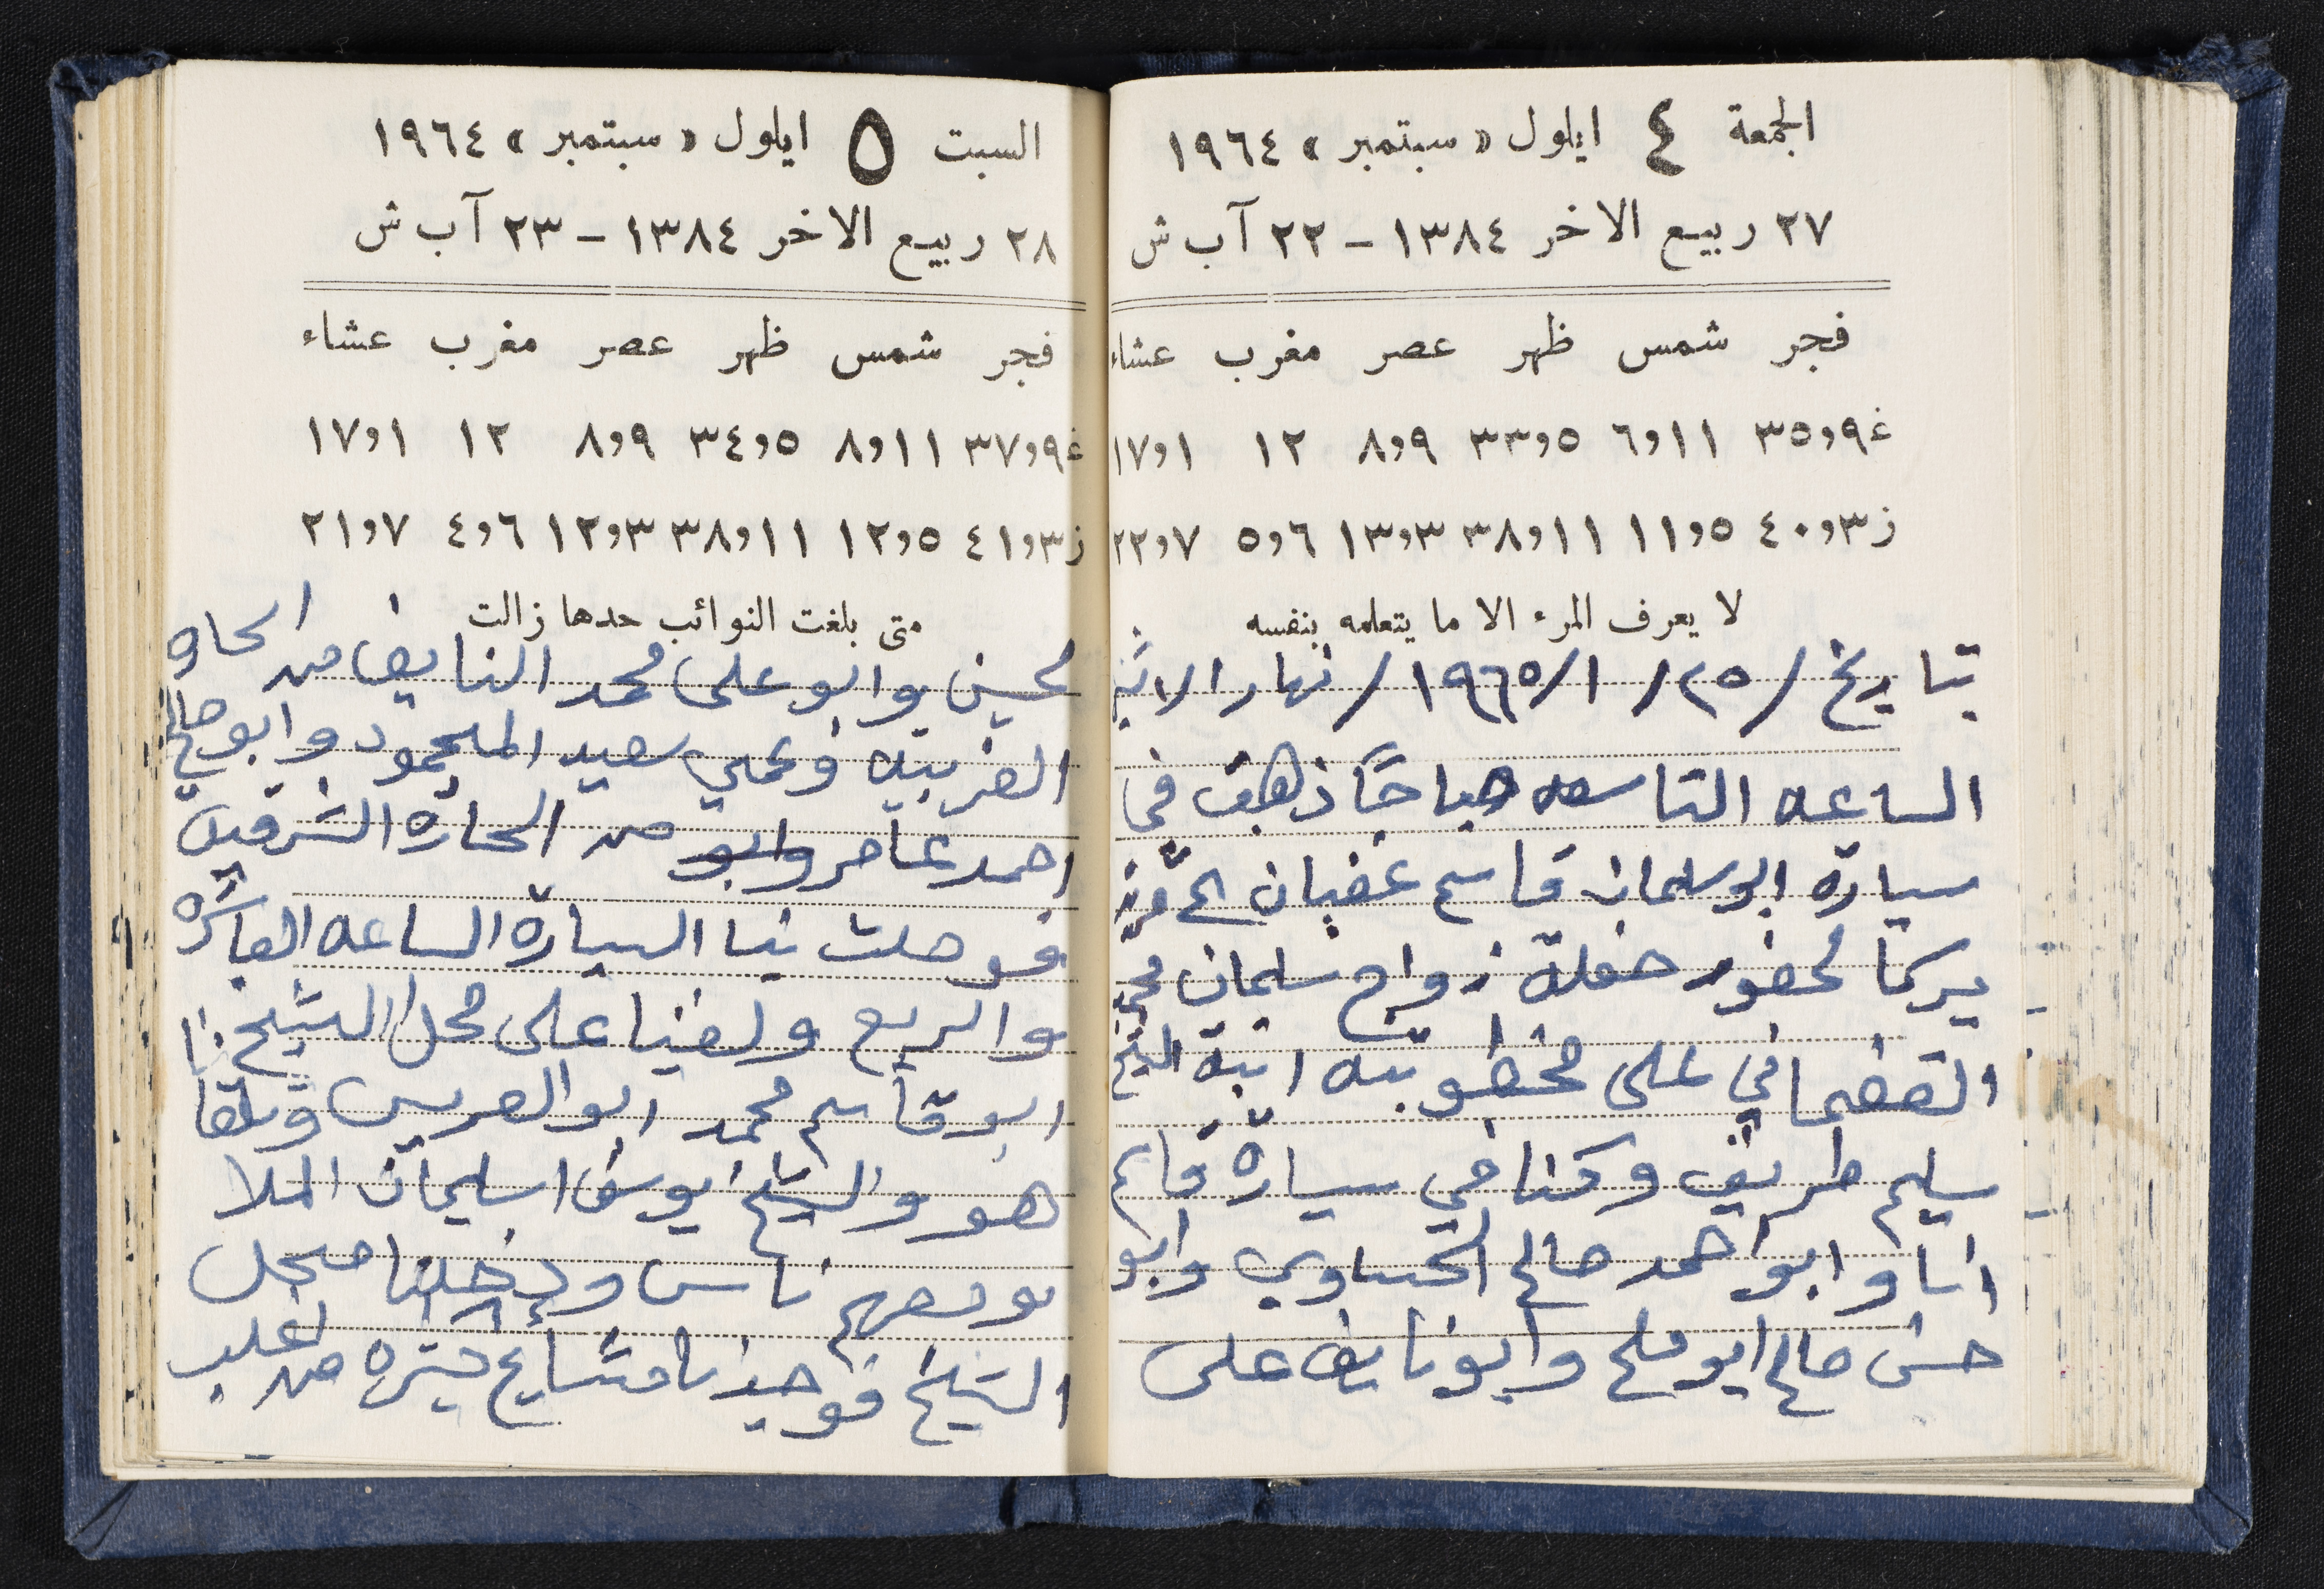 الجمعة ٤ ايلول « سبتمبر » ١٩٦٤
٢٧ ربيع الاخر ١٣٨٤ – ٢٢ آب ش
فجر شمس ظهر عصر مغرب عشاء
غ ٩و٣٥ ١١و٦ ٥و٣٣ ٩و٨ ١٢ ١و١٧
ز ٣و٤٠ ٥و١١ ١١و٣٨ ٣و١٣ ٦و٥ ٧و٢٢
لا يعرف المرء الا ما يتعلمه بنفسه
بتاريخ /٢٥/ ١/ ١٩٦٥/ نهار الاثنين
الساعه التاسعه صباحًا ذهبت في
سيارة ابو سلمان قاسم غضبان الى قرية
يركا لحضور حفلة زواج سليمان محمد
القضماني على مخطوبته ابنة الشيخ
سليم طريف وكنا في سيارة قاسم
انا وابو احمد صالح الحساوي وابو
حسن صالح ابو ملح وابو نايف على
السبت ٥ ايلول « سبتمبر » ١٩٦٤
٢٨ ربيع الاخر ١٣٨٤ – ٢٣ آب ش
فجر شمس ظهر عصر مغرب عشاء
غ ٩و٣٧ ١١و٨ ٥و٣٤ ٩و٨ ١٢ ١و١٧
ز ٣و٤١ ٥و١٢ ١١و٣٨ ٣و١٢ ٦و٤ ٧و٢١
متى بلغت النوائب حدها زالت
محسن وابو على محمد النايف من الحاره
الغربيه وعمي سعيد المحمود وابو صالح
احمد عامر وابو من الحارة الشرقية
فوصلت بنا السيارة الساعه العاشره
والربع ولفينا على محل الشيخ
ابو قاسم محمد ابو العريس وتلقانا
هو والشيخ يوسف اسليمان الملا
ومعهم ناس ودخلنا محل
الشيخ فوجدنا مشايخ كثيره من اغلب